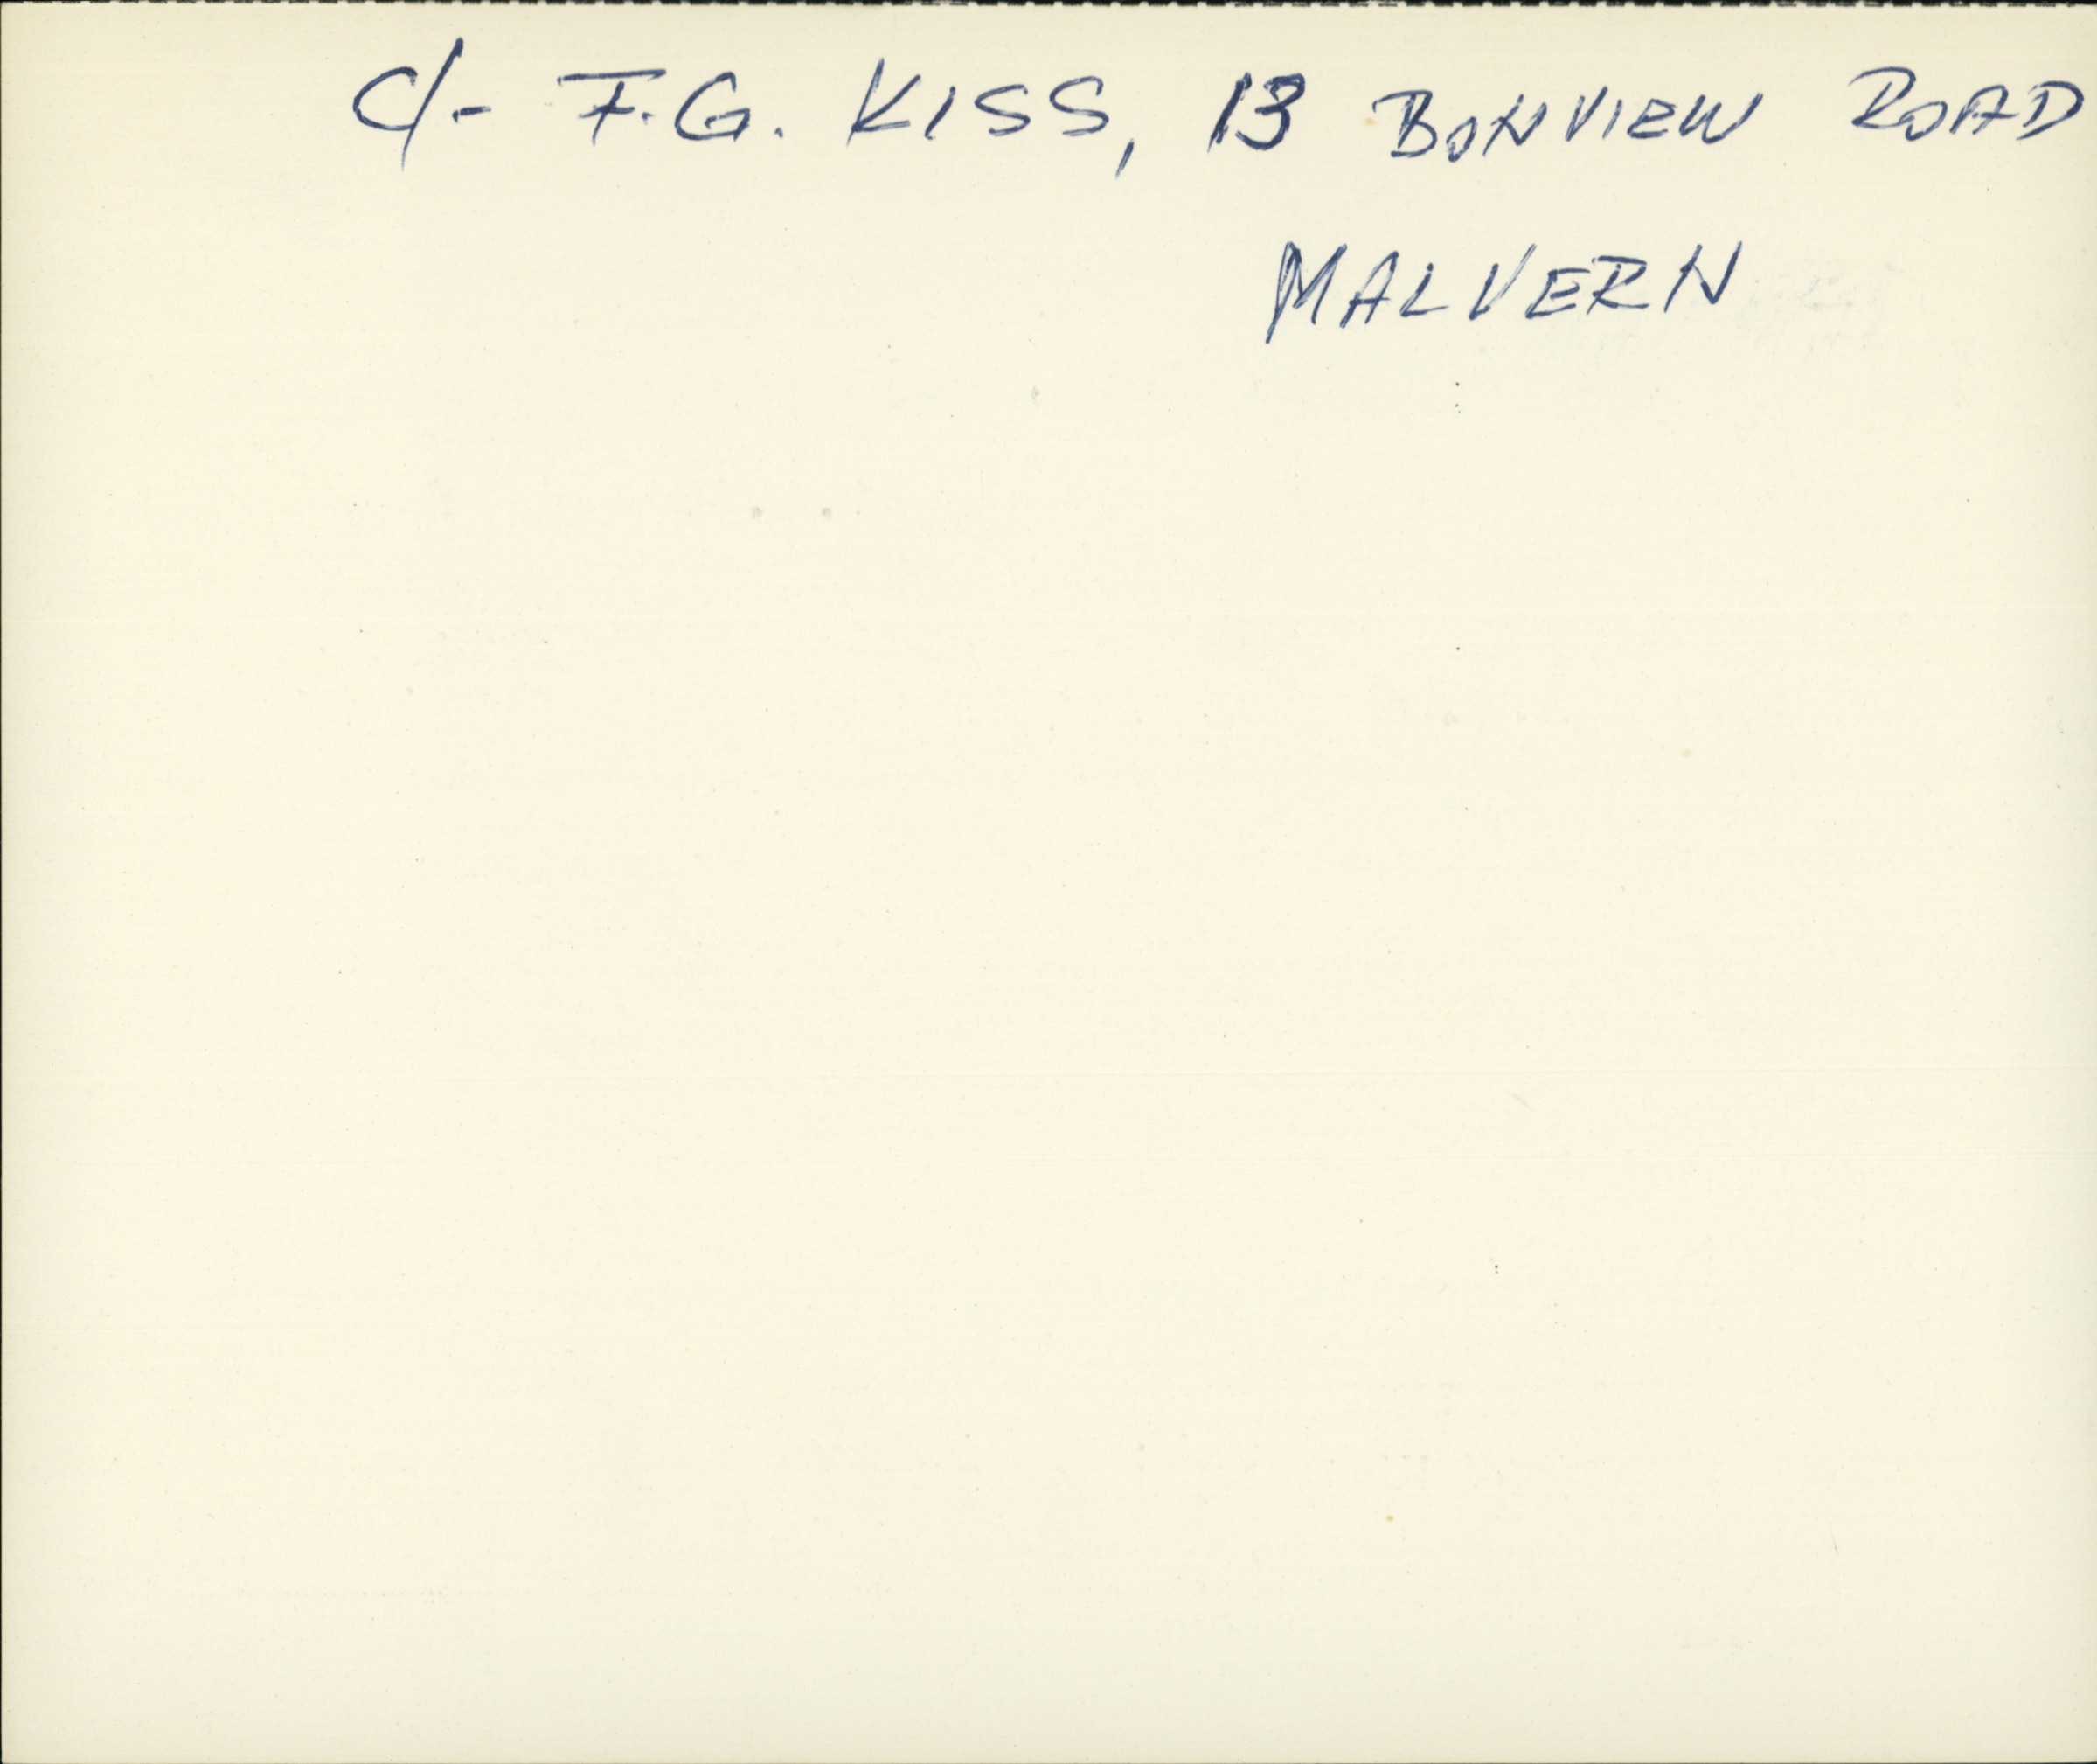 C/- F.G. KISS, 13 BONVIEW ROAD
MALVERN